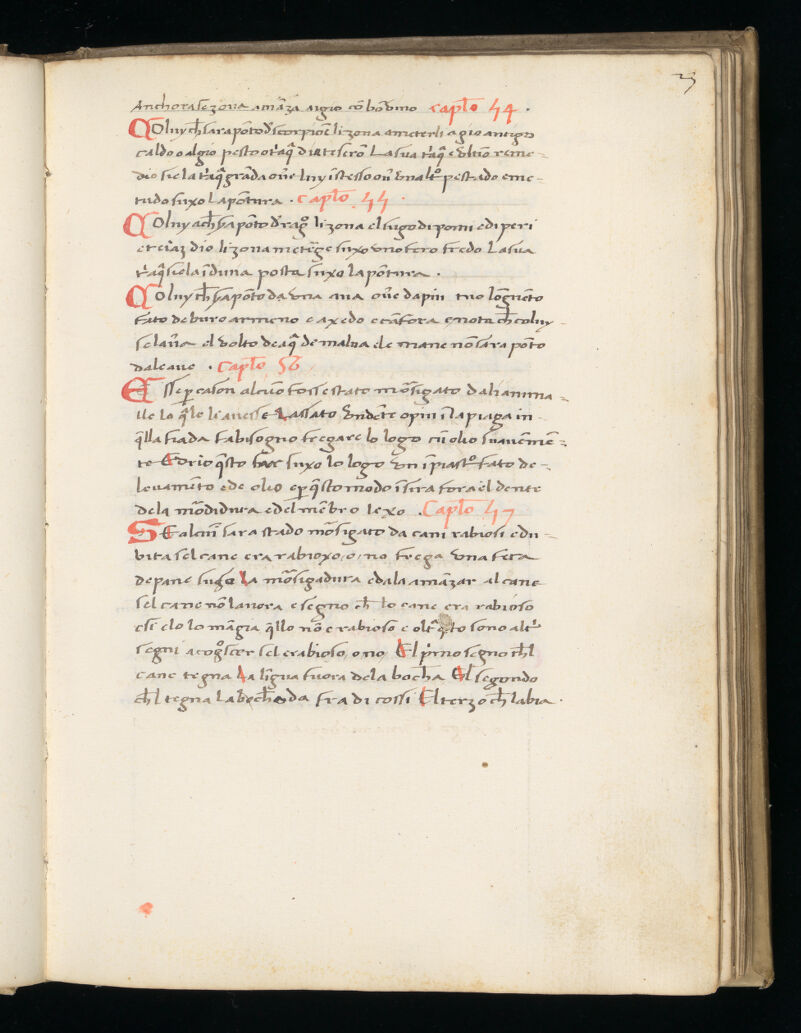 23
Anchora se zova amãza aigio cõ bõ vino capl̃o 54 .
COluy ch̃ sara põto d scorpiõe li zona a meterli agio antigo
caldo o algio pesto o tr̃aq̃ diatesserõ La sua tr̃aq̃ e ultiõ reme-
dio sie la tr̃aq̃ grãda oũe luy istesso oũ un altrº pestado e me-
tudo suxo la põtura . capl̃o 55 .
COluy ach̃ sia põto d ragº li zona el sugo di pomi e di peri
et ciaz dio li zova metẽge suxo uno fero fredo La sua
tr̃aq̃ sie la induna posta suxo la põtura .
COluy ch̃ sia põto da una ava oũe da pin tuo lõguẽto
fato de buro armeno e axedo e cãfora e nota ch̃ coluy
se lava el volto de aq̃ de malua e le mane nõ sara põto
da le ave . capl̃o 56
ESse per cason alcuõ fosse stato morsigato da li anima-
lle lo q̃le li avesse Lassato un dẽte o piui i la piaga in
q̃lla fiada fa bisogno fregare lo logo cũ olio suavemẽ-
te E drio q̃sto far suxo lo logo un ipiastrº fato de-
levamẽto e de olio e per q̃sto modo isira fora el dente
de la mordidura e del mẽbro lexo . Capl̃o 57
SE alcuñ sara stado morsigato da cani rabiosi e du-
bita se l cane era rabioxo, o, no frega una feta
de pane sugo La morsigadura e dala a mãzar al cane
se l cane nõ la vora e segno ch̃ lo cane era rabioso
e se elo lo mãgia q̃llo nõ e rabioso e oltr̃ q̃sto sono altrⁱ
segni a cogº̃scer se l e rabioso, o, no El pr̃mo segno ch̃ l
cane tegna La lĩgua fuora de la bocha El segondo
ch̃ l tegna la boch̃ e da fra di cossi El terzo ch̃ l abia .